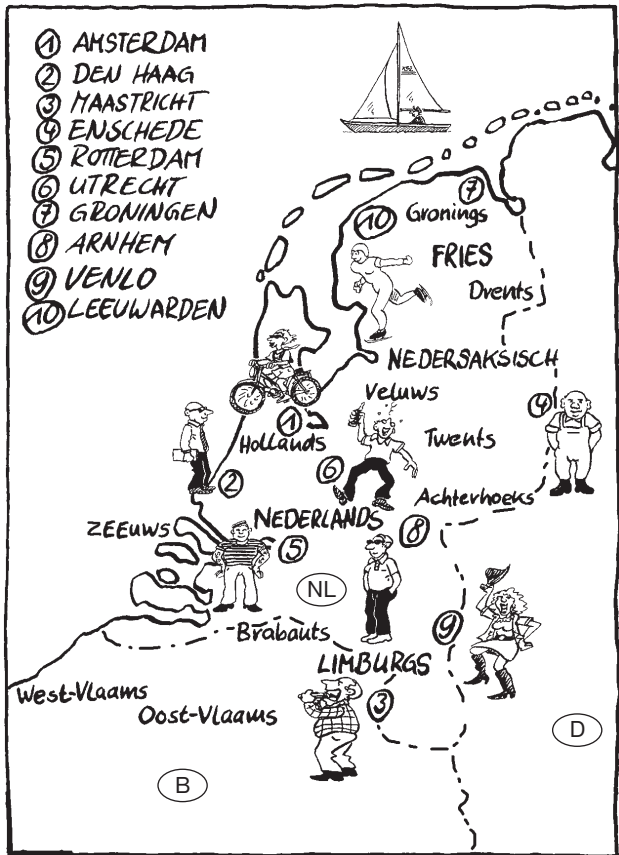 1 AMSTERDAM
2 DEN HAAG
3 MAASTRICHT
4 ENSCHEDE
5 ROTTERDAM
6 UTRECHT
7 GRONINGEN
8 ARNHEM
9 VENLO
10 LEEUWARDEN
7
10 Gronings
FRIES
Drents
NEDERSAKSISCH
Veluws
4
1
Hollands
Twents
6
2
Achterhoeks
NEDERLANDS
8
ZEEUWS
5
NL
9
Brabants
LIMBURGS
West-Vlaams
3
Oost-Vlaams
D
B